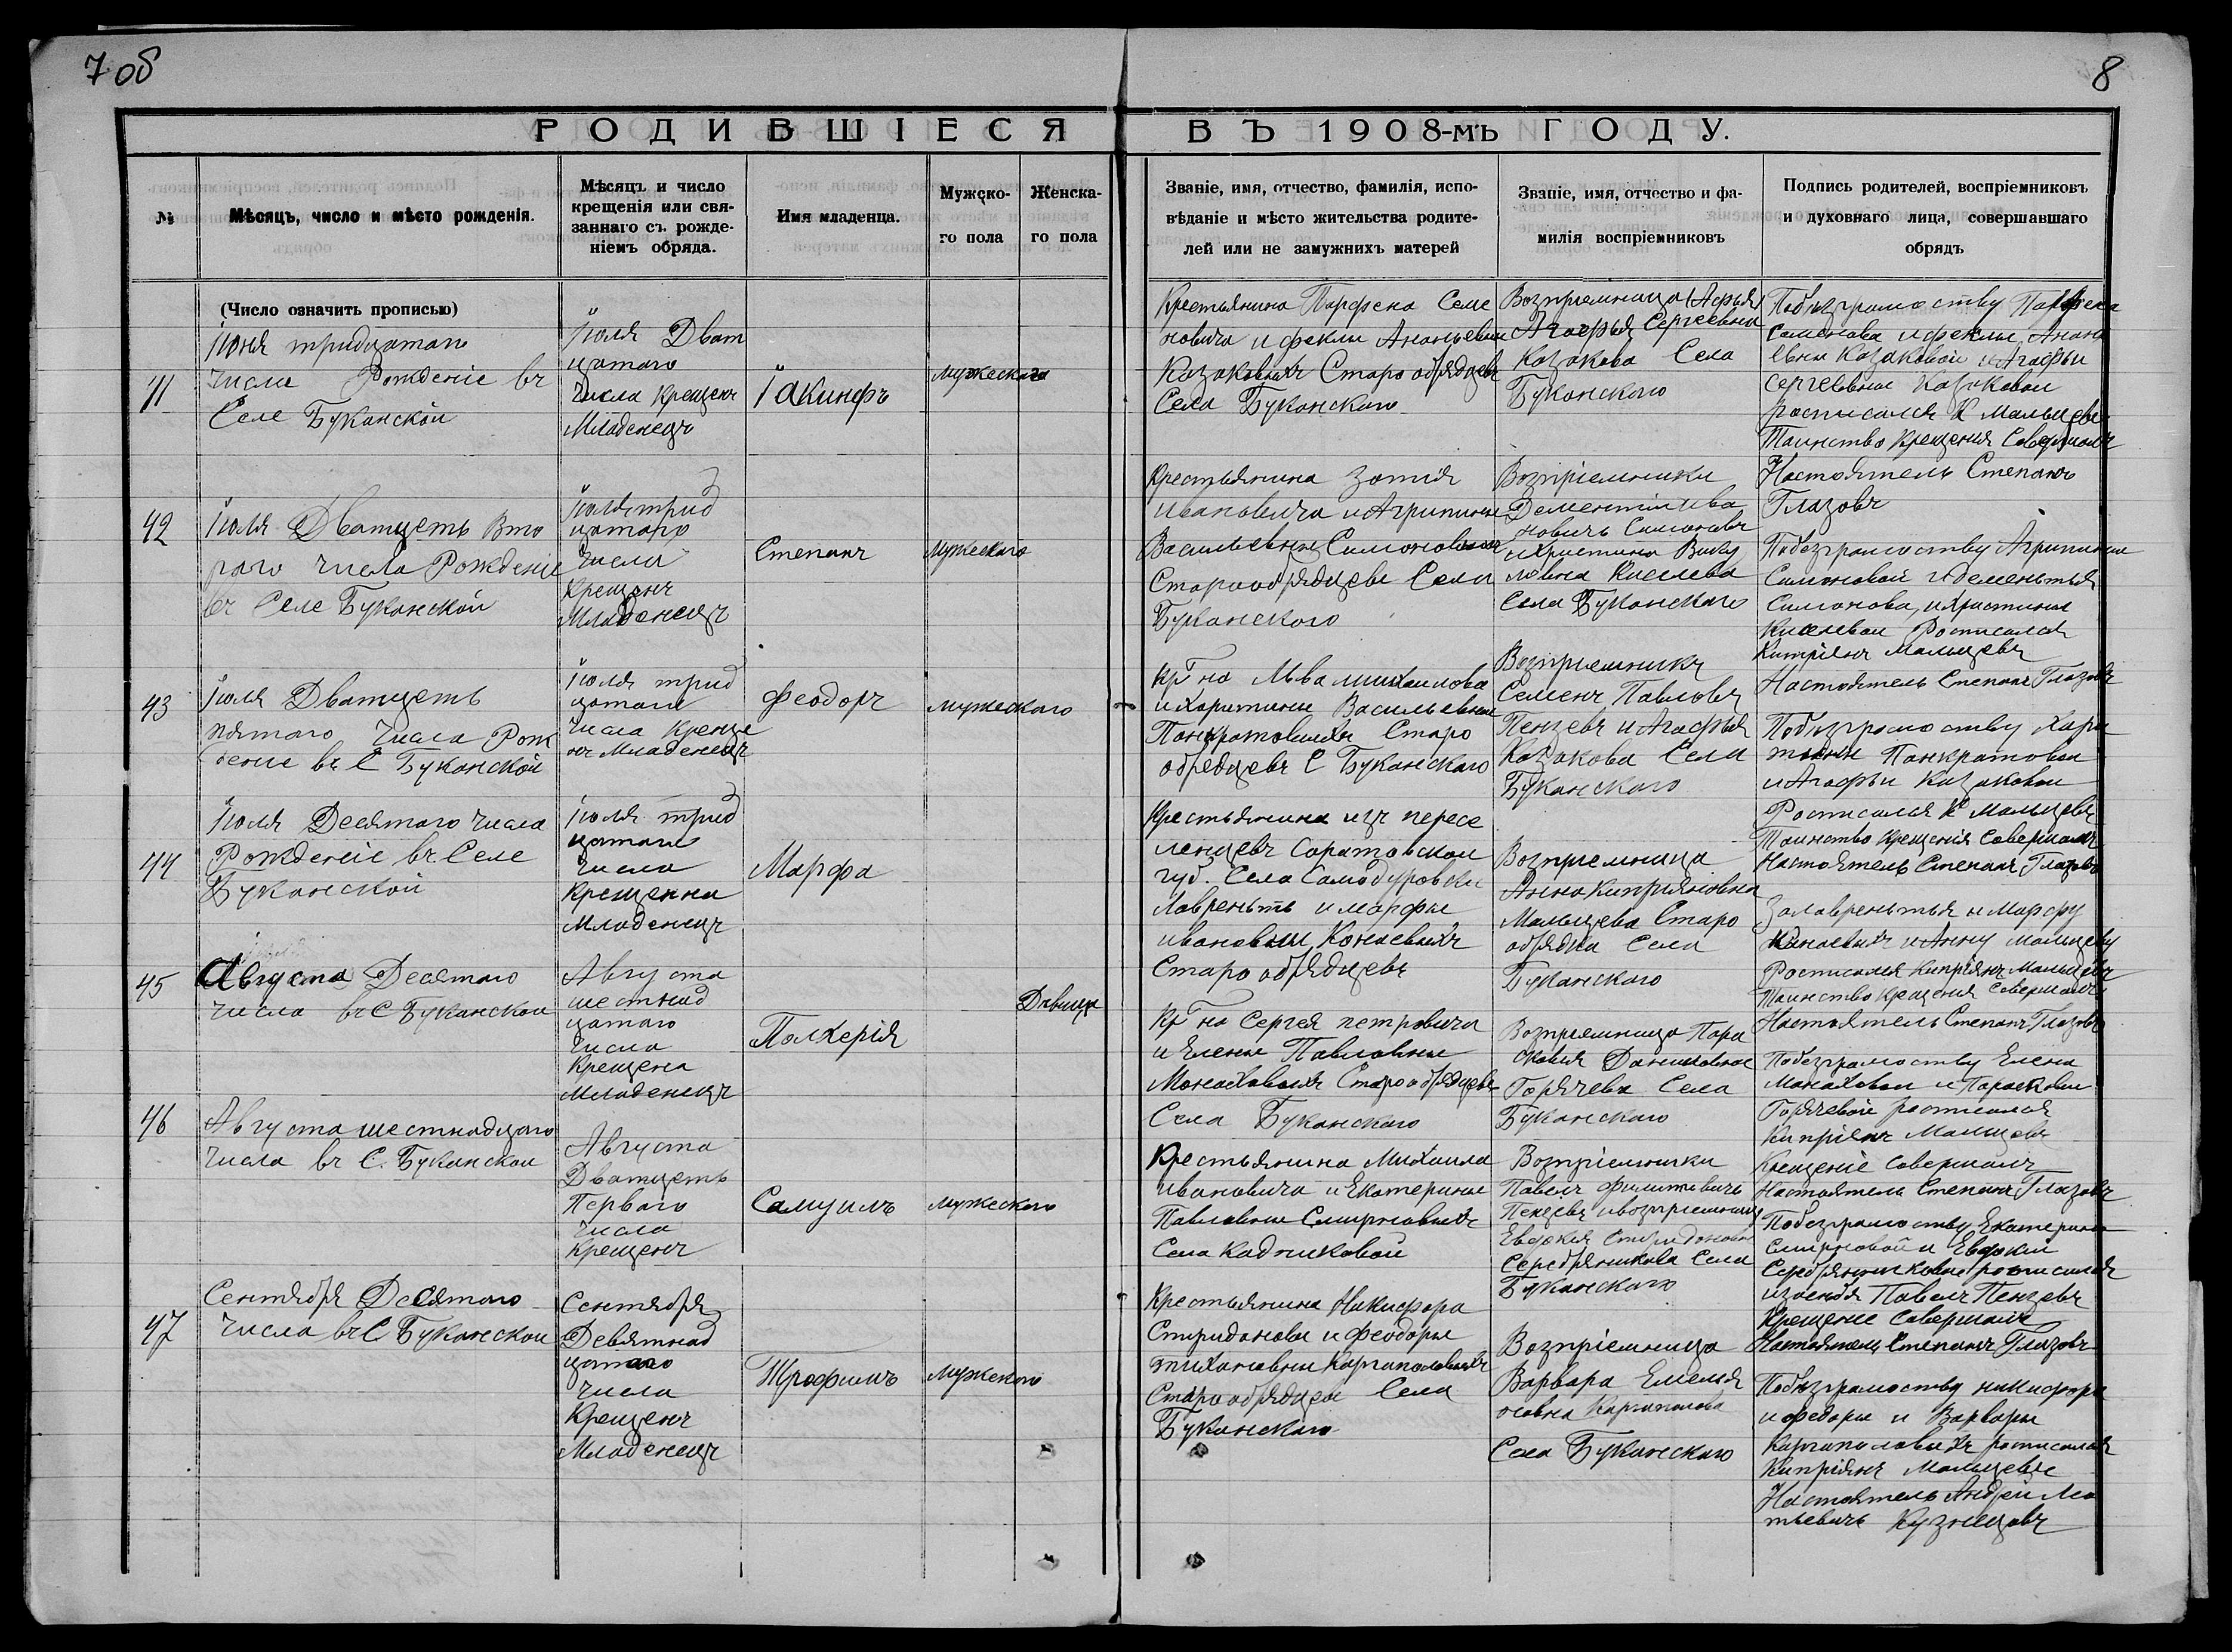 7 об
8
РОДИВШІЕСЯ ВЪ 1908-мъ ГОДУ.
№
Мѣсяцъ, число и мѣсто рожденія.
Мѣсяцъ и число
крещенія или свя-
заннаго съ рожде-
ніемъ обряда.
Имя младенца.
Мужско-
го пола
Женска-
го пола
Званіе, имя, отчество, фамилія, испо-
вѣданіе и мѣсто жительства родите-
лей или не замужнихъ матерей
Званіе, имя, отчество и фа-
милія воспріемниковъ
Подпись родителей, воспріемниковъ
и духовнаго лица, совершавшаго
обрядъ
(Число означить прописью)
41
Іюня тридцатаго
Числа Рожденіе въ
Селе Буканской
Іюля Дват
цатаго
Числа Крещенъ
Младенецъ
Іакинфъ
мужескаго
Крестьянина Парфена Семе
новича и феклы Ананьевны
Казаковыхъ Старообрядцевъ
Села Буканского
Возпріемница
Агафья Сергеевна
Казакова Села
Буканского
Побезграмоству Парфена
Семенова и феклы Анань
евны Казаковой и Агафьи
Сергеевны Казаковой
росписался К Мальцевъ
Таинство Крещения Совершалъ
Настоятель Степанъ
Глазовъ
42
Іюля Дватцеть Вто
раго числа Рожденіе
въ Селе Буканской
Іюля трид
цатаго
Числа
Крещенъ
Младенецъ
Степанъ
Мужескаго
Крестьянина Зотія
ивановича и Агрипины
Васильевны Симоновыхъ
Старообрядцевъ Села
Буканского
Возпріемники
Дементій Ива
новичъ Симоновъ
и Христина
Киселева
Села Буканского
Побезграмоству Агрипины
Симоновой и дементья
Симонова, и Христины
Киселевой Росписался
Кипріянъ Мальцевъ
Настоятель Степанъ Глазовъ
43
Іюля Дватцеть
пятаго Числа Рож
дение въ С Буканской
Іюля трид
цатаго
Числа Креще
нъ Младенецъ
Феодоръ
мужескаго
Кр на Льва михаилова
и Харитины Васильевны
Панкратовыхъ Старо
обредцевъ С Буканского
Возпріемникъ
Семенъ Павловъ
Пензевъ и Агафья
Казакова Села
Буканского
Побезграмоству Хари
тины Панкратовой
и Агафьи Казаковой
Росписался К Мальцевъ
Таинство Крещения Совершалъ
Настоятель Степанъ Глазовъ
44
Іюля Десятаго Числа
Рожденіе въ Селе
Буканской
Іюля трид
цатаго
Числа
Крещенна
Младенецъ
Марфа
Крестьянина изъ пересе
ленцевъ Саратовской
губ. Села Самодуровки
Лавреньтъ и марфы
ивановны Конаевыхъ
Старообрядцевъ
Возпріемница
Анна Киприяновна
Мальцева Старо
обрядка Села
Буканского
За лавреньтья и Марфу
Канаевыхъ и Анну Мальцеву
Росписался Кипріянъ Мальцевъ
Таинство Крещения Совершалъ
Настоятель Степанъ Глазовъ
45
Августа Десятаго
числа въ С Буканской
Августа
шестнад
цатаго
Числа
Крещена
Младенецъ
Палхерія
Дѣвица
Кр на Сергея петровича
и Елены Павловны
Монаховыхъ Старообрядцевъ
Села Буканского
Возпріемница Пара
сковия Даниловна
Горячева Села
Буканского
Побезграмоству Елены
Манаховой и Параскови
Горячевой росписался
Кипріянъ Мальцевъ
Крещеніе Совершалъ
Настоятель Степанъ Глазовъ
46
Августа шестнадцаго
Числа въ С. Буканской
Августа
Дватцеть
Перваго
Числа
Крещенъ
Самуилъ
мужескаго
Крестьянина Михаила
ивановича и Екатерины
Павловны Смирновыхъ
Села Кадниковой
Возпріемники
Павелъ Филиповичъ
Пензевъ и возпріемница
Евдокия Спиридоновна
Серебрянникова Села
Буканского
Побезграмоству Екатерины
Смирновой и Евдокии
Серебрянниковы росписался
Павелъ Пензевъ
Крещение Совершалъ
Настоятель Степанъ Глазовъ
47
Сентября Десятаго
Числа въ С Буканской
Сентября
Девятнад
цатаго
Числа
Крещенъ
Младенецъ
Трофимъ
Мужеского
Крестьянина Никифора
Спиридоновы и Феодоры
тихановны Каргаполовыхъ
Старообрядцевъ Села
Буканского
Возпріемница
Варвара Емелья
новна Каргаполова
Села Буканского
Побезграмоству никифора
и федоры и Варвары
Каргаполовыхъ росписался
Кипріянъ Мальцевъ
Настоятель Андрей Ма
тьевичъ Кузнецовъ